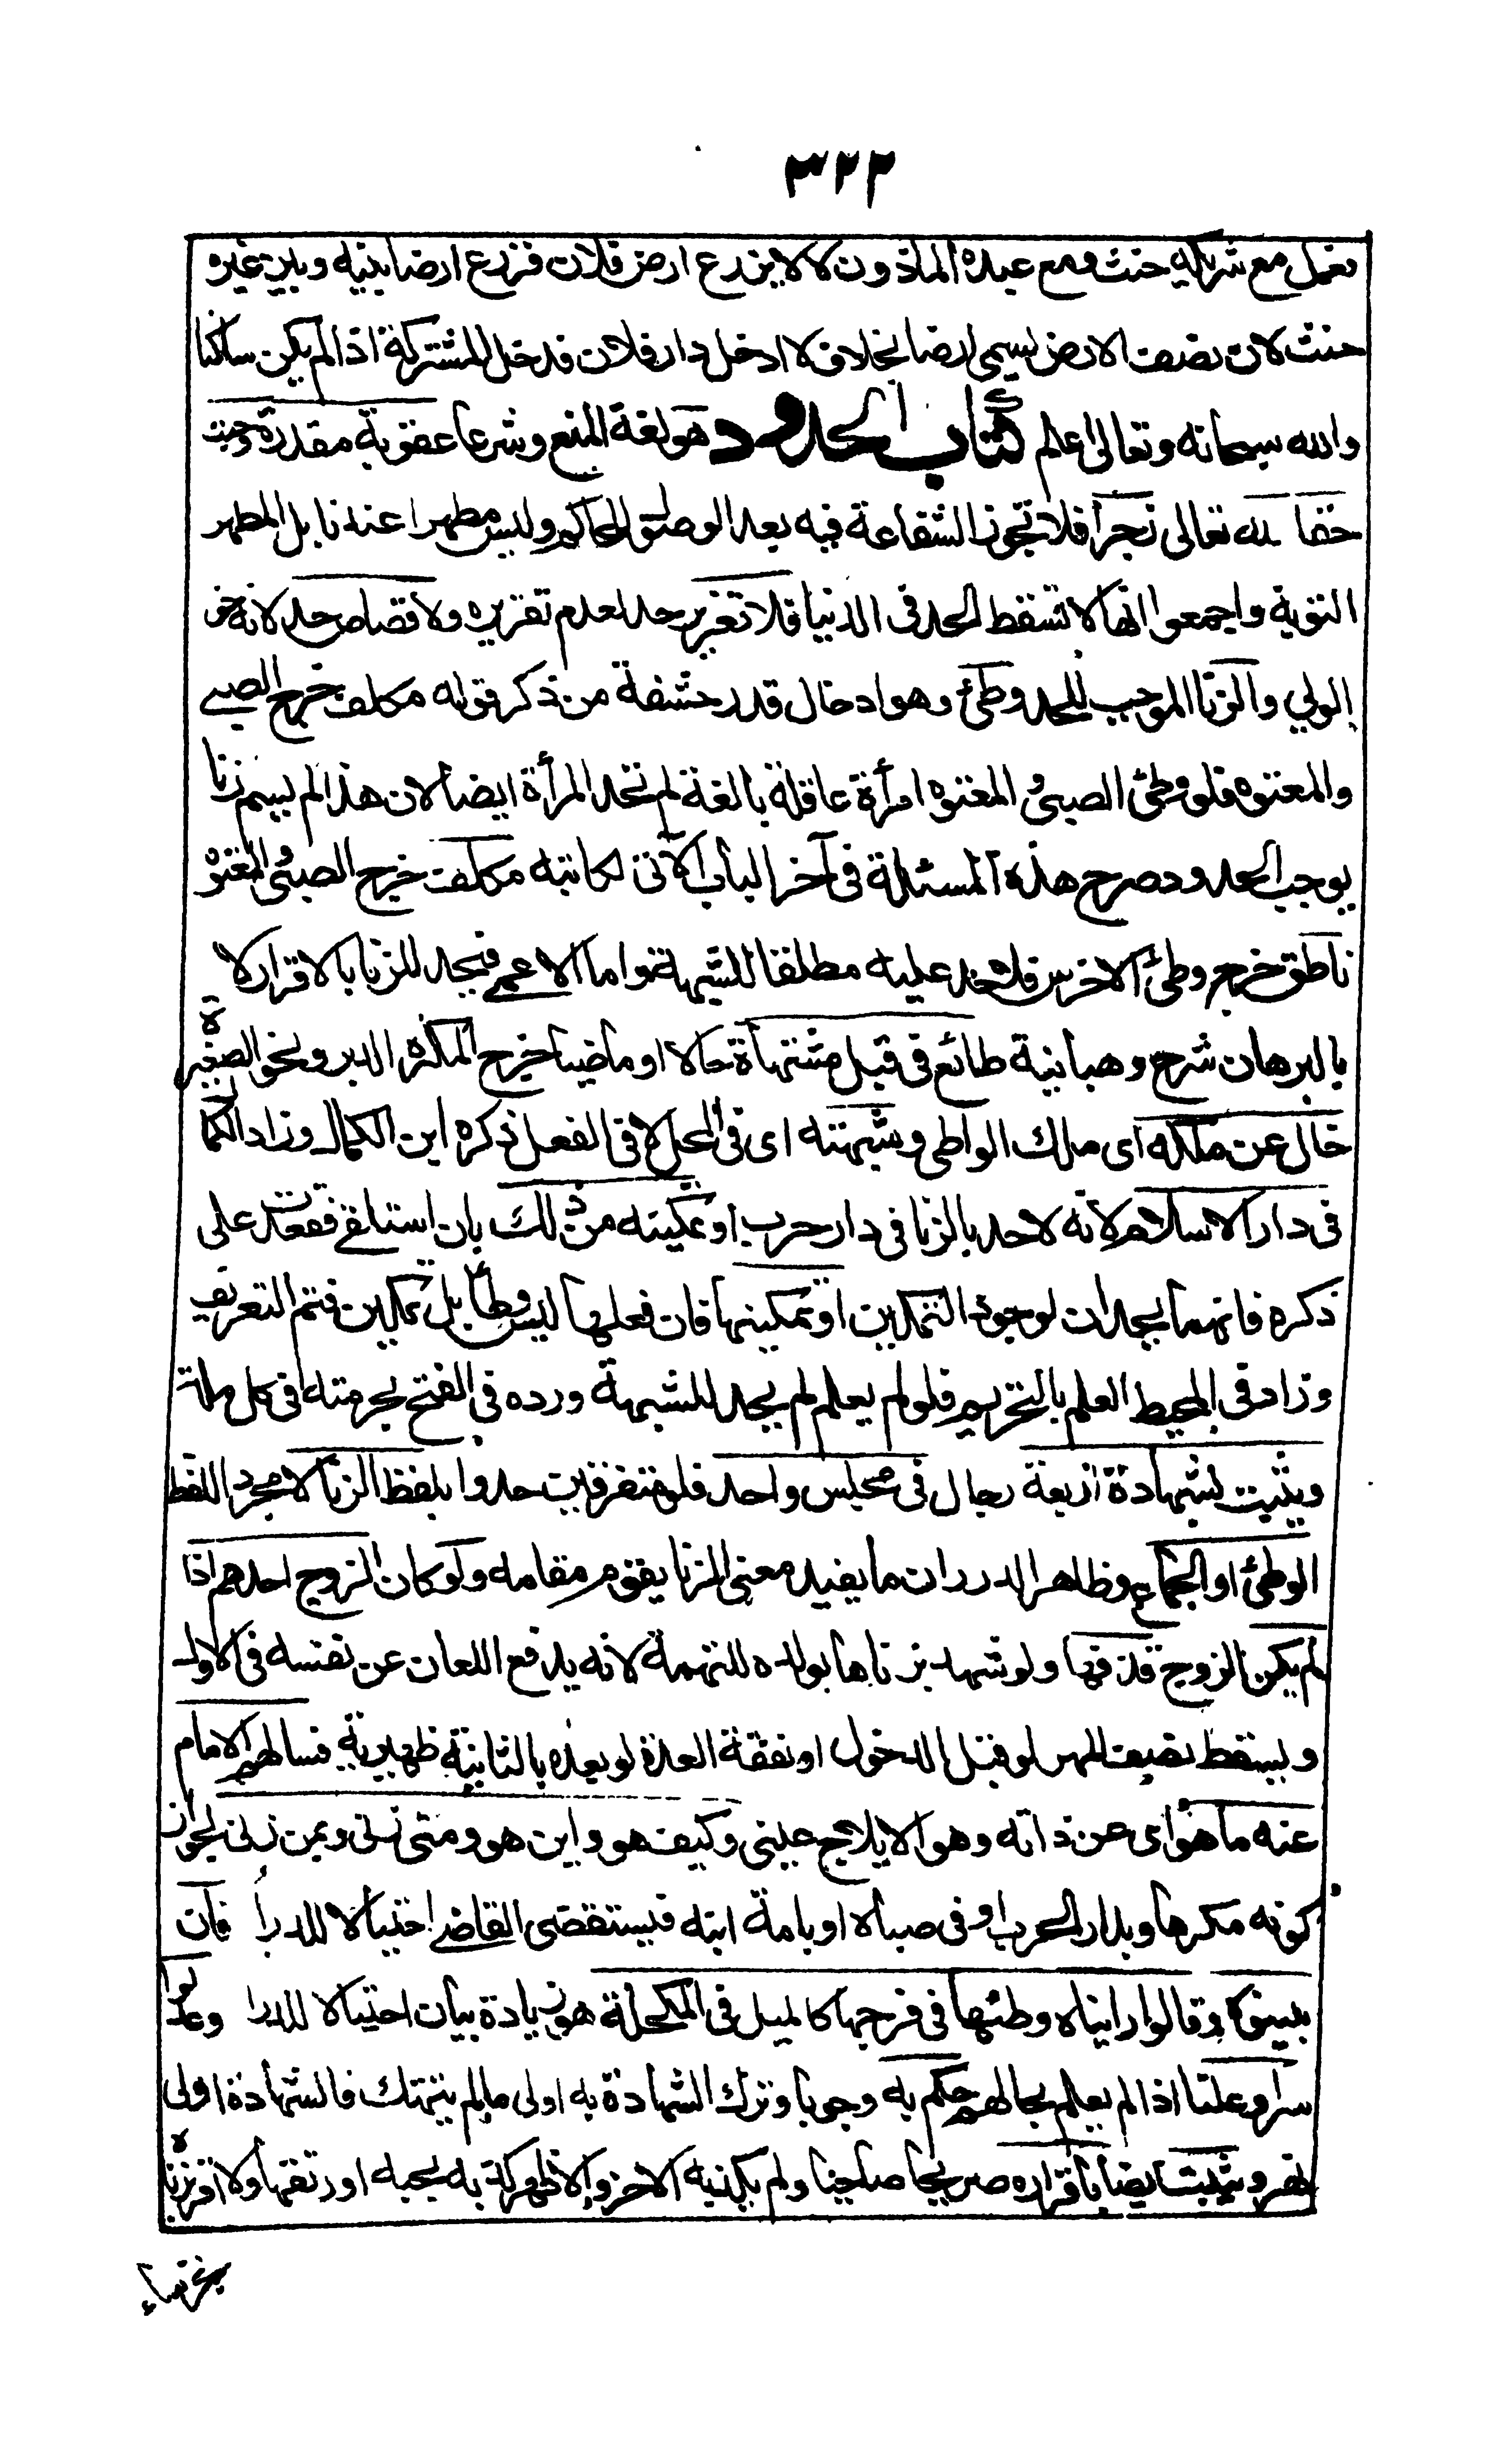 ٣٢٣
فعمل مع شريكه حنث ومع عبده المأذون لا لا يزرع ارض فلان فزرع ارضا بينه وبين غيره
حنث لان نصف الارض يسمى ارضا بخلاف لا ادخل دار فلان فدخل المشتركة اذا لم يكن ساكنا
والله سبحانه وتعالى اعلم كتاب الحدود هو لغة المنع وشرعا عقوبة مقدرة وجبت
حقا لله تعالى زجرا فلا تجوز الشفاعة فيه بعد الوصول للحاكم وليس مطهرا عندنا بل المطهر
التوبة واجمعوا انها لا تسقط الحد فى الدنيا فلا تعزير حد لعدم تقديره ولا قصاص حد لانه حق
الولي والزنا الموجب للحد وطئ وهو ادخال قدر حشفة من ذكر قوله مكلف خرج الصبي
والمعتوه فلو وطئ الصبى او المعتوه امرأة عاقلة بالغة لم تحد المرأة ايضا لان هذا لم يسم زنا
يوجب الحد وصرح هذه المسئلة فى آخر الباب الآتى لكاتبه مكلف خرج الصبى والمعتوه
ناطق خرج وطئ الاخرس فلا حد عليه مطلقا للشبهة واما الاعمى فيحد للزنا بالاقرار لا
بالبرهان شرح وهبانية طائع فى قبل مشتهاة حالا او ماضيا خرج المكره الدبر ونحو الصغيرة
خال عن ملكه اى ملك الواطى وشبهته اى فى المحل لا فى الفعل ذكره ابن الكمال وزاد الكمال
فى دار الاسلام لانه لاحد بالزنا فى دار حرب او تمكينه من ذلك بان استلقى فقعدت على
ذكره فانهما يحدان لوجود التمكين او تمكينها فان فعلها ليس وطأ بل تمكين فتم التعريف
وزاد فى المحيط العلم بالتحريم فلو لم يعلم لم يحد للشبهة ورده فى الفتح بحرمته فى كل ملة
ويثبت بشهادة اربعة رجال فى مجلس واحد فلو متفرقين حدوا بلفظ الزنا لا مجرد اللفظ
الوطئ او الجماع وظاهر الدرر ان ما يفيد معنى الزنا يقوم مقامه ولو كان الزوج احدهم اذا
لم يكن الزوج قذفها ولو شهد بزناها بولده للتهمة لانه يدفع اللعان عن نفسه فى الاولى
ويسقط نصف المهر لو قبل الدخول او نفقة العدة لو بعده بالثانية ظهيرية فسالهم الامام
عنه ما هو اى عن ذاته وهو الايلاج عينى وكيف هو واين هو ومتى زنى وبمن زنى لجواز
كونه مكرها وبدار الحرب او فى صباه او بامة ابنه فيستقصى القاضى احتيالا للدرأ فان
بينوه وقالوا رايناه وطئها فى فرجها كالميل فى المكحلة هو زيادة بيان احتيالا للدرا وعدلوا
سرا وعلنا اذا لم يعلم بحالهم حكم به وجوبا وترك الشهادة به اولى مالم يتهتك فالشهادة اولى
نهر ويثبت ايضا باقراره صريحا صاحيا ولم يكذبه الاخر ولا ظهر كذبه بجبه او رتقها ولا اقر بزناه